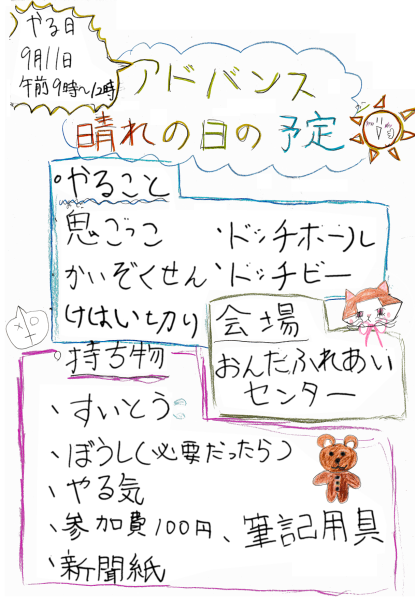 やる日
9月11日
午前9時~12時
アドバンス
晴れの日の予定
・やること
鬼ごっこ
、ドッチボール
かいぞくせん
、ドッチビー
けはい切り
会場
おんだふれあい
センター
・持ち物
、すいとう
、ぼうし(必要だったら)
、やる気
、参加費100円、筆記用具
、新聞紙